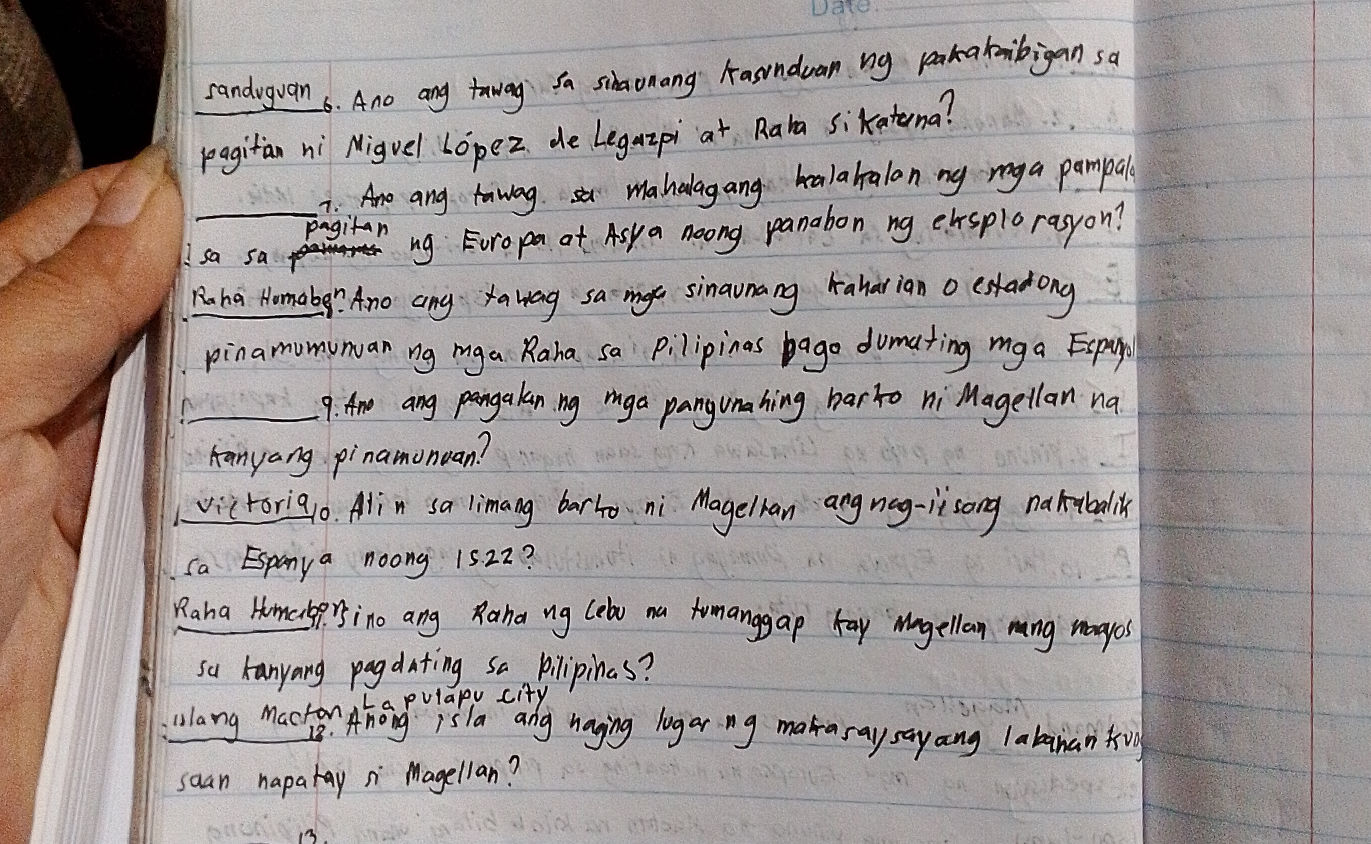 Date
sanduguan 6. Ano ang tawag sa sinaunang kasunduan ng pakakaibigan sa
pagitan ni Miguel López de Legazpi at Raha Sikatuna?
7. Ano ang tawag sa mahalagang kalakalan ng mga pampala
sa sa pagitan ng Europa at Asya noong panahon ng eksplorasyon?
Raha Humabon 8. Ano ang tawag sa mga sinaunang kaharian o estadong
pinamumunuan ng mga Raha sa Pilipinas bago dumating mga Espanyol
9. Ano ang pangalan ng mga pangunahing barko ni Magellan na
kanyang pinamunuan?
Victoria 10. Alin sa limang barko ni Magellan ang nag-iisang nakabalik
sa Espanya noong 1522?
Raha Humabon 11. Sino ang Raha ng Cebu na tumanggap kay Magellan nang maayos
sa kanyang pagdating sa Pilipinas?
Lapulapu city
ulang Mactan 12. Anong isla ang naging lugar ng makasaysayang labanan kung
saan napatay si Magellan?
13.